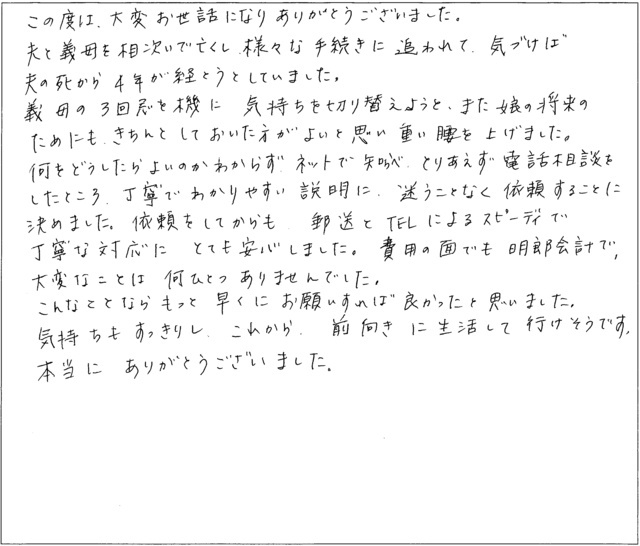 この度は、大変お世話になりありがとうございました。
夫と義母を相次いで亡くし、様々な手続きに追われて、気づけば
夫の死から4年が経とうとしていました。
義母の3回忌を機に 気持ちを切り替えようと、また娘の将来の
ためにも、きちんとしておいた方がよいと思い 重い腰を上げました。
何をどうしたらよいのかわからず、ネットで知らべ、とりあえず電話相談を
したところ、丁寧でわかりやすい説明に、迷うことなく依頼することに
決めました。依頼をしてからも 郵送とTELによるスピーディで
丁寧な対応に とても安心しました。費用の面でも明郎会計で、
大変なことは何ひとつありませんでした。
こんなことならもっと早くにお願いすれば良かったと思いました。
気持ちもすっきりし、これから、前向きに生活して行けそうです。
本当に ありがとうございました。